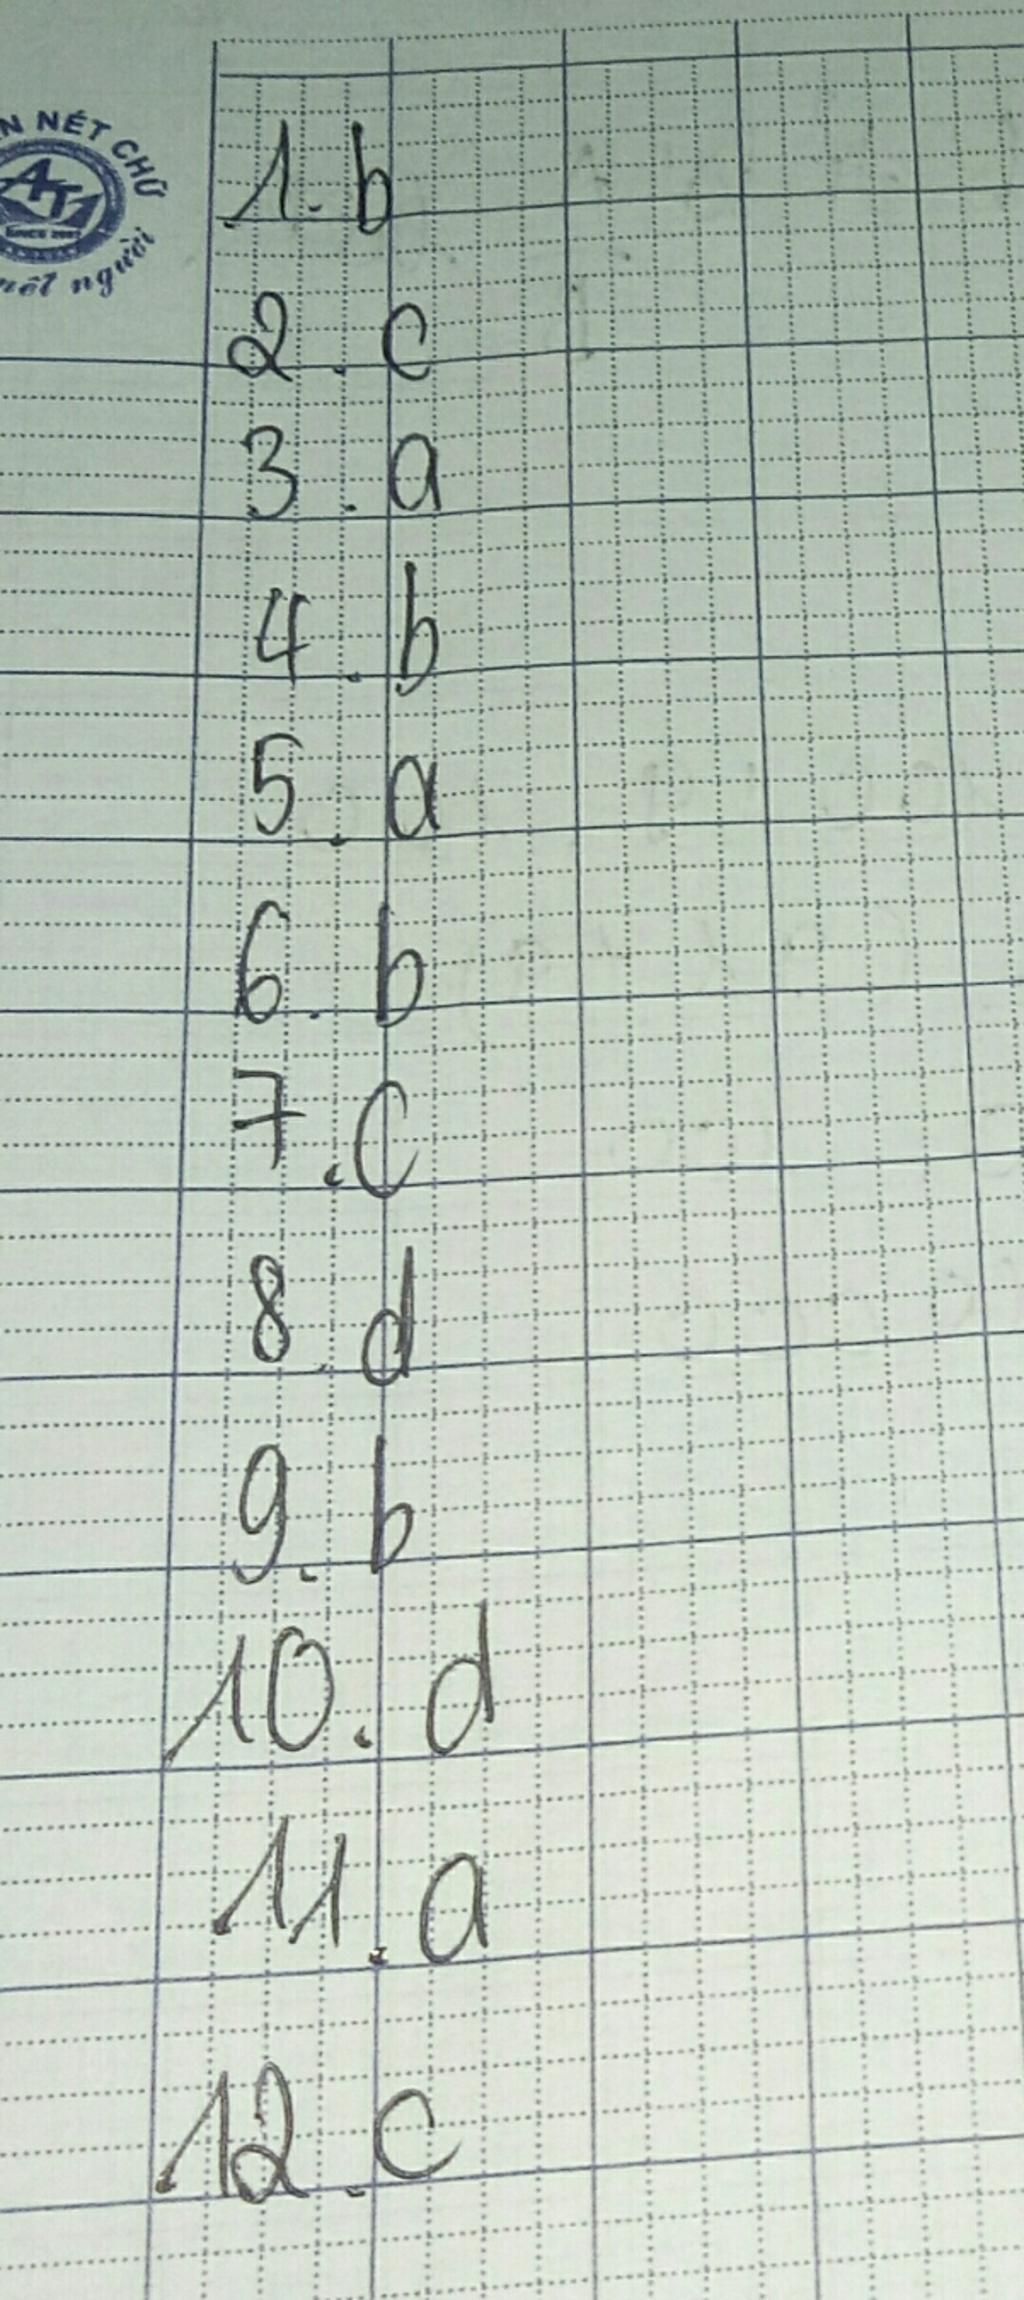 N NÉT CHỮ
AT
SINCE
nết người
1. b
2. c
3. a
4. b
5. a
6. b
7. c
8. d
9. b
10. d
11. a
12. c